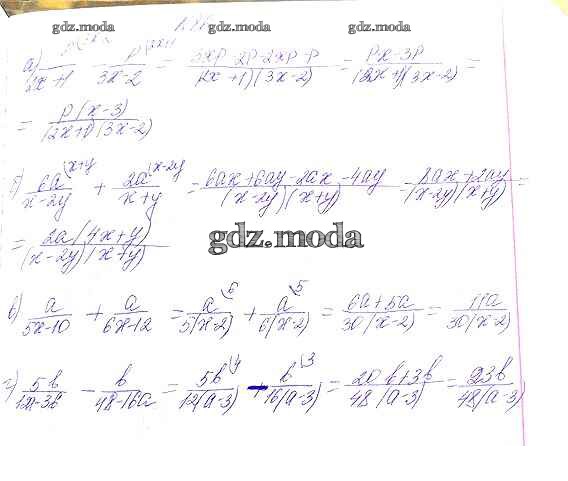 gdz.moda gdz.moda gdz.moda
а) p/(2x+1) - p/(3x-2) = (3xp-2p-2xp-p)/((2x+1)(3x-2)) = (px-3p)/((2x+1)(3x-2)) =
= p(x-3)/((2x+1)(3x-2))
б) 6a^(x+y)/(x-2y) + 2a^(x-2y)/(x+y) = (6ax+6ay+2ax-4ay)/((x-2y)(x+y)) = (8ax+2ay)/((x-2y)(x+y)) =
= 2a(4x+y)/((x-2y)(x+y))
gdz.moda
в) a/(5x-10) + a/(6x-12) = a^6/(5(x-2)) + a^5/(6(x-2)) = (6a+5a)/(30(x-2)) = 11a/(30(x-2))
г) 5b/(12a-36) - b/(48-16a) = 5b^4/(12(a-3)) + b^3/(16(a-3)) = (20b+3b)/(48(a-3)) = 23b/(48(a-3))
gdz.moda gdz.moda gdz.moda